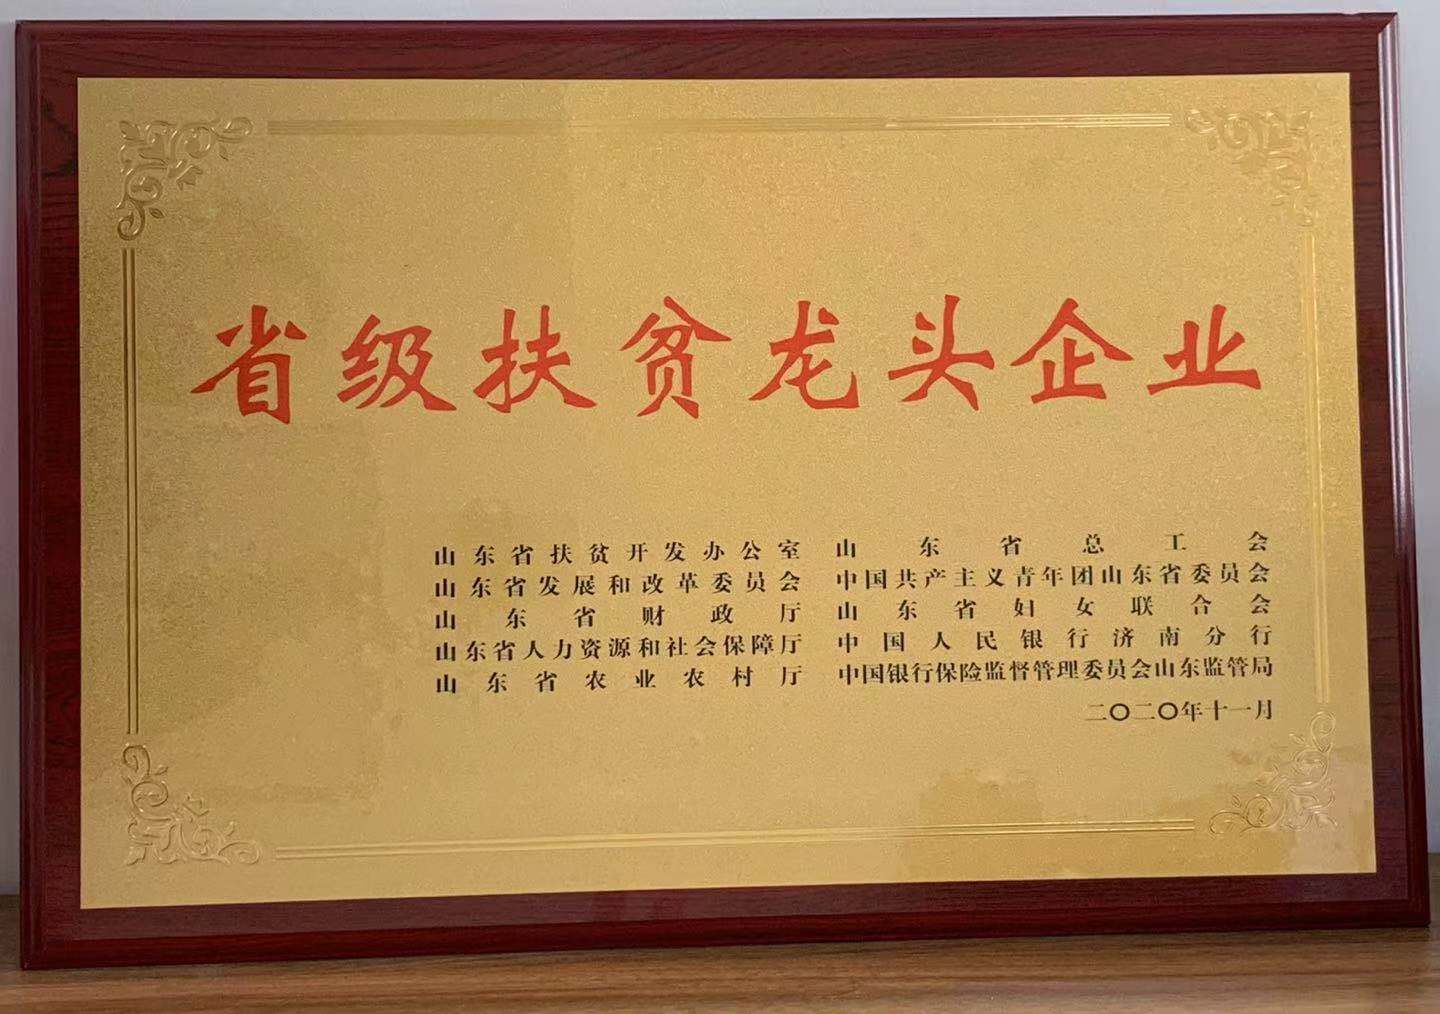 省级扶贫龙头企业
山东省扶贫开发办公室 山东省总工会
山东省发展和改革委员会 中国共产主义青年团山东省委员会
山东省财政厅 山东省妇女联合会
山东省人力资源和社会保障厅 中国人民银行济南分行
山东省农业农村厅 中国银行保险监督管理委员会山东监管局
二〇二〇年十一月